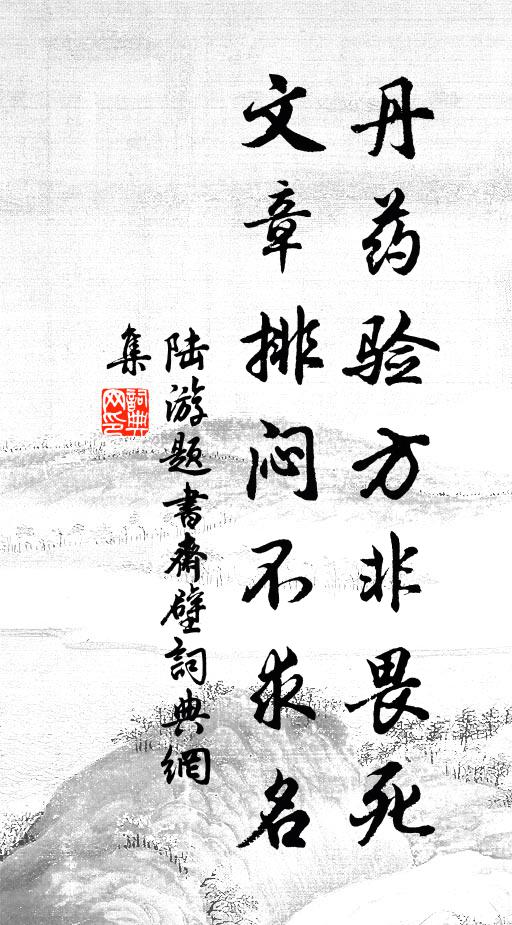 丹药验方非畏死
文章排闷不求名
陆游题書齋壁詞典網
集
詞典網印